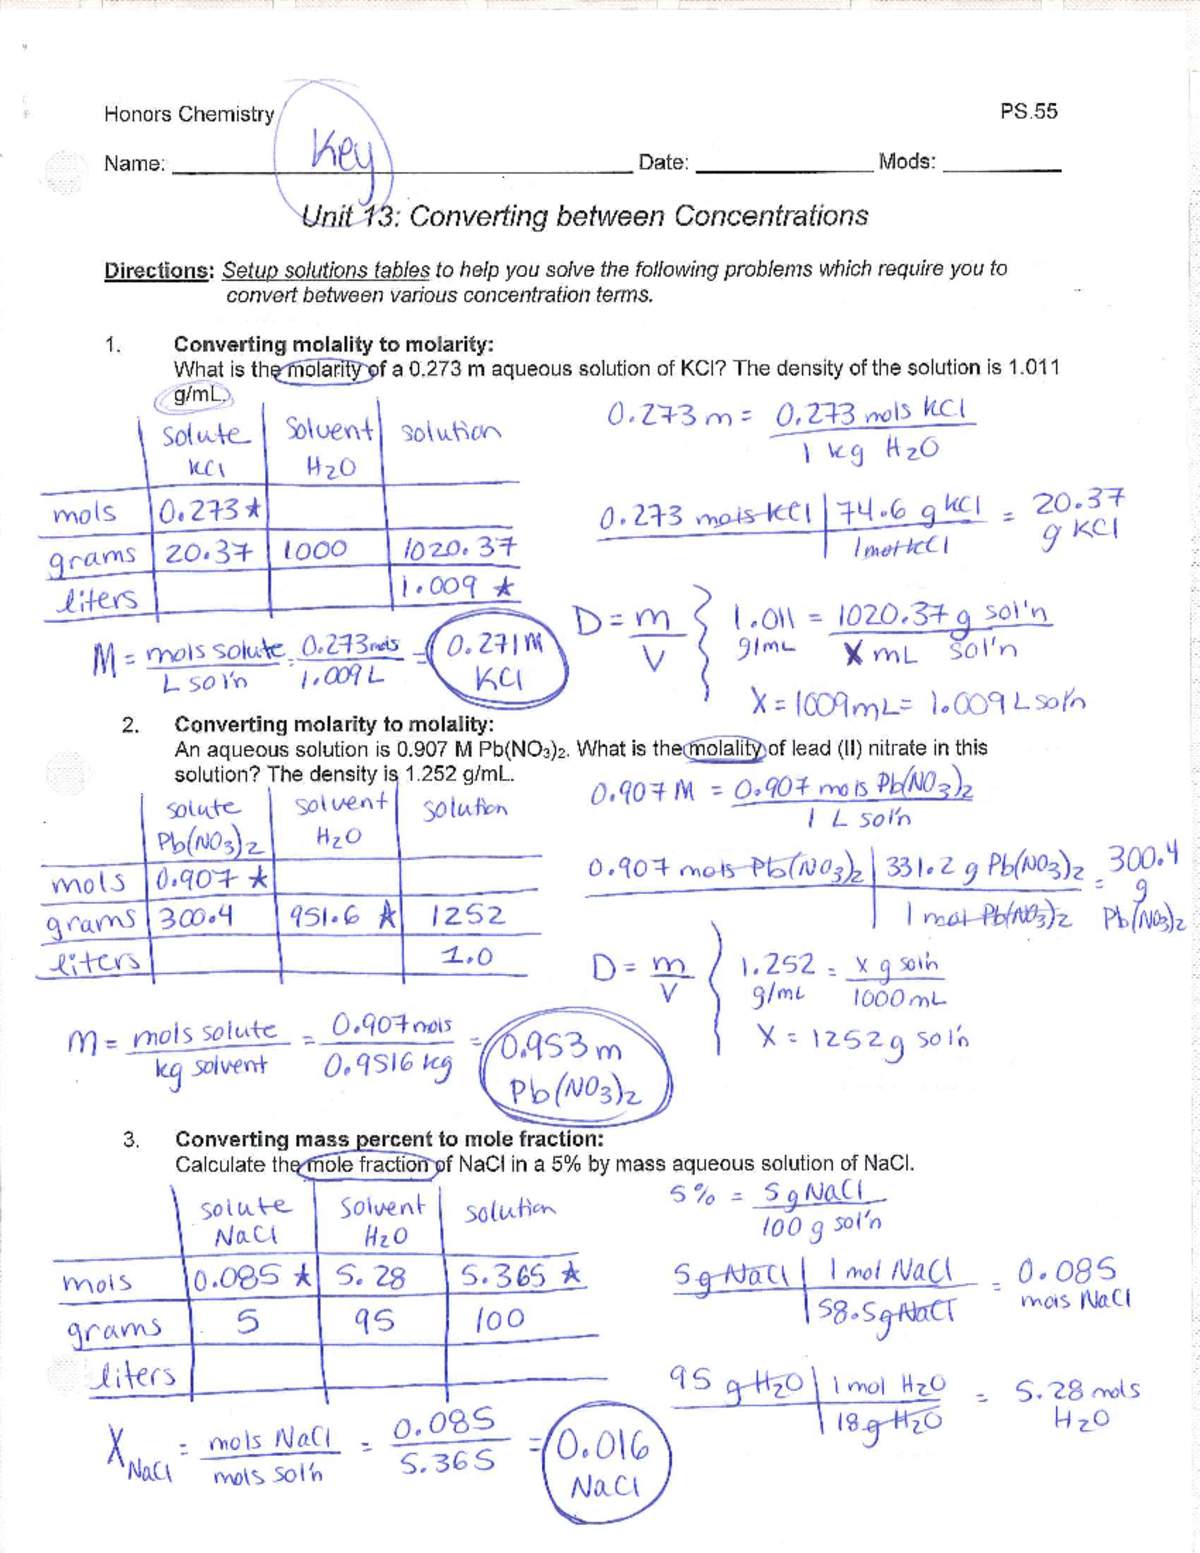 Honors Chemistry
PS.55
Key
Name: Date: Mods:
Unit 13: Converting between Concentrations
Directions: Setup solutions tables to help you solve the following problems which require you to
convert between various concentration terms.
1. Converting molality to molarity:
What is the molarity of a 0.273 m aqueous solution of KCl? The density of the solution is 1.011
g/mL.
solute KCl solvent H2O solution
mols 0.273★
grams 20.37 1000 1020.37
liters 1.009 ★
0.273 m = 0.273 mols KCl / 1 kg H2O
0.273 mols KCl | 74.6 g KCl / 1 mol KCl = 20.37 g KCl
D = m / V } 1.011 g/mL = 1020.37 g sol'n / X mL sol'n
X = 1009 mL = 1.009 L sol'n
M = mols solute / L sol'n = 0.273 mols / 1.009 L = 0.271 M KCl
2. Converting molarity to molality:
An aqueous solution is 0.907 M Pb(NO3)2. What is the molality of lead (II) nitrate in this
solution? The density is 1.252 g/mL.
solute Pb(NO3)2 solvent H2O solution
mols 0.907 ★
grams 300.4 951.6 ★ 1252
liters 1.0
0.907 M = 0.907 mols Pb(NO3)2 / 1 L sol'n
0.907 mols Pb(NO3)2 | 331.2 g Pb(NO3)2 / 1 mol Pb(NO3)2 = 300.4 g Pb(NO3)2
D = m / V } 1.252 g/mL = x g sol'n / 1000 mL
X = 1252 g sol'n
m = mols solute / kg solvent = 0.907 mols / 0.9516 kg = 0.953 m Pb(NO3)2
3. Converting mass percent to mole fraction:
Calculate the mole fraction of NaCl in a 5% by mass aqueous solution of NaCl.
solute NaCl solvent H2O solution
mols 0.085 ★ 5.28 5.365 ★
grams 5 95 100
liters
5% = 5 g NaCl / 100 g sol'n
5 g NaCl | 1 mol NaCl / 58.5 g NaCl = 0.085 mols NaCl
95 g H2O | 1 mol H2O / 18 g H2O = 5.28 mols H2O
X NaCl = mols NaCl / mols sol'n = 0.085 / 5.365 = 0.016 NaCl